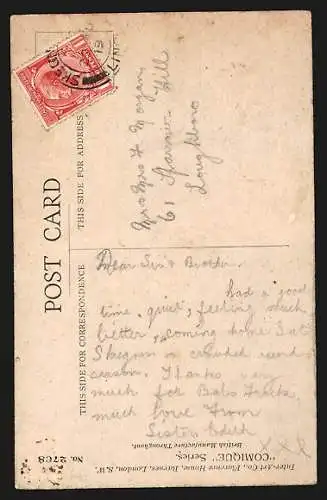 POST CARD
THIS SIDE FOR CORRESPONDENCE
THIS SIDE FOR ADDRESS
SKEGN
LINC
19
Mr & Mrs F Morgan
61 Hill
Loughboro
Dear Sis & Brother
had a good
time, quiet, feeling much
better, coming home Sat
Skegness crowded
season. Thanks very
much for Babs
much love from
Sister Edith
X X X
Inter-Art Co., Florence House, Barnes, London, S.W.
"COMIQUE" Series.
British Manufacture Throughout.
No. 2768